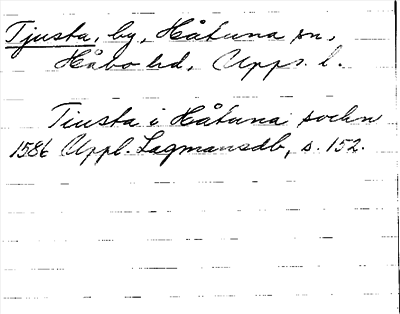 Tjusta, by, Håtuna sn,
Håbo hd, Upps. l.
Tiusta i Håtuna sochn
1586 Uppl. Lagmansdb, s. 152.